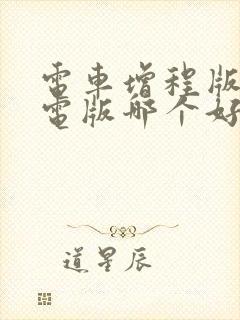 電車增程版
電版哪个好
道星辰